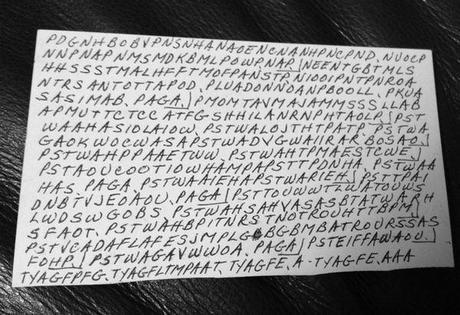 PDGNHBOBVPNSNHANAOENCNANHPNCPND, NUOCP
NNPNAPNMSMDKBMLPOWPNAR) NEENTGBTMLS
HHSSSTMALHFFTMOFPANSTP, NIOOIPNTPNROA
NTRSANTOTTAPOD, PLUADONNOANPBOOLL, PKUA
SASIMAB, PAGA,) PMOMTANMAJAMMSSSLLAB
APMUTTCTCCATFGSHHILANRNPHTAOLP) PST
WAAHASIOLAIOW, PSTWALOJTHTPATP, PSTWA
GAOKWOCWASAPSTWADVGWAIIRAR, BOSAO,)
PSTWAHPPAAETWW, PSTWAHTPMAESTCWE,)
PSTAOUCOOTIOWHAMPAPSTTPOUHA, PSTWAA
HAS, PAGA, PSTWAAIEHAPSTWARIEH) PSTTPAI
DNBTVJEOAOU, PAGA) PSTTOUWWTLWATOUWS
LWDSWGOBS, PSTWAHSAHVASASBTATW
SFAOT, PSTWAHBPITNRSTNOTROUHTTBPA
PSTVCADAFLAFESJMPLG BGBMBATROURSSAS
FOHP) PSTWAGAVWWOA, PAGA) PSTEIFFAWAOU,)
TYAGFPFG, TYAGFLTMPAAT, TYAGFE, A-TYAGFE, AAA